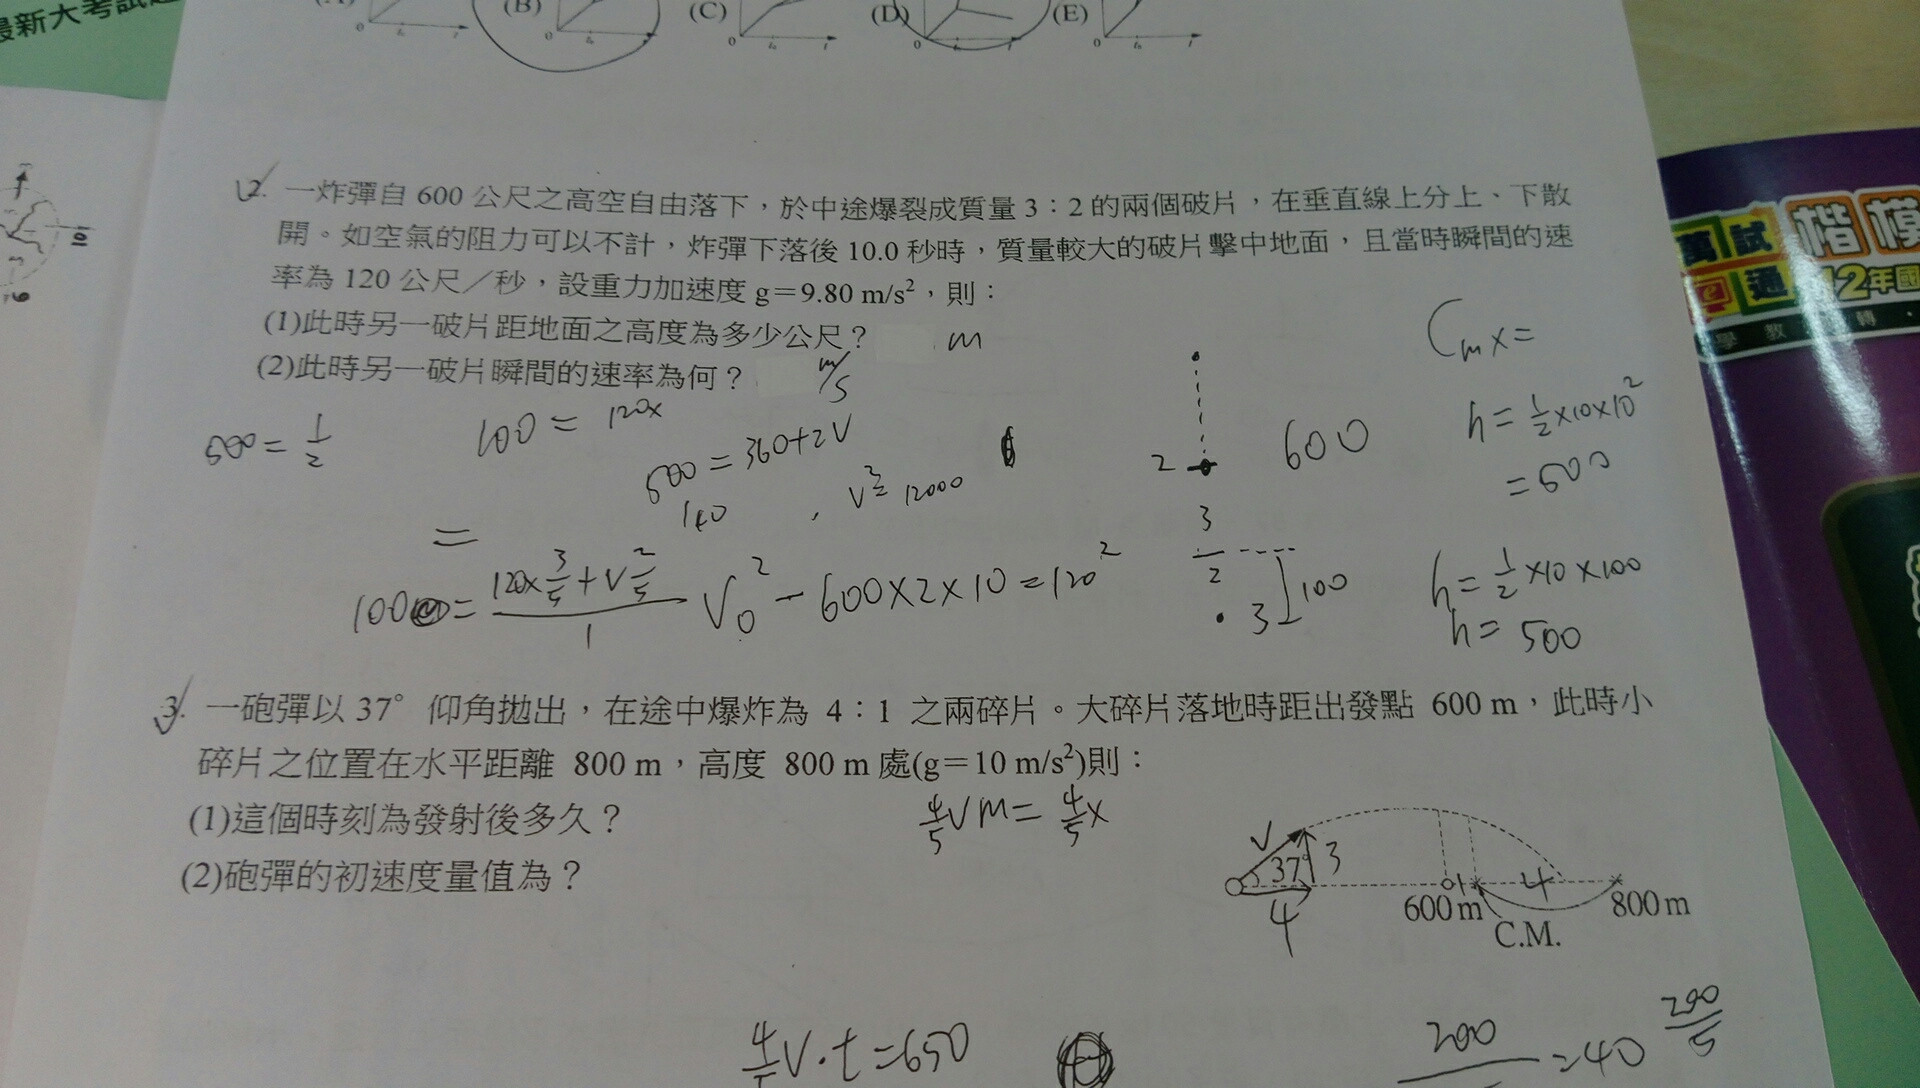 最新大考試
(A) (B) (C) (D) (E)
0 t₀ t 0 t₀ 0 t₀ t 0 t 0 t₀ t
2. 一炸彈自 600 公尺之高空自由落下，於中途爆裂成質量 3：2 的兩個破片，在垂直線上分上、下散
開。如空氣的阻力可以不計，炸彈下落後 10.0 秒時，質量較大的破片擊中地面，且當時瞬間的速
率為 120 公尺／秒，設重力加速度 g＝9.80 m/s²，則：
(1)此時另一破片距地面之高度為多少公尺？ m
(2)此時另一破片瞬間的速率為何？ m/s
Cmx=
500 = 1/2
100 = 120x
500 = 360+2V
140
V²= 12000
2
600
h = 1/2×10×10²
= 500
=
100 = (120×3/5+V2/5)/1
V₀² - 600×2×10 = 120²
3
2
3
100
h = 1/2×10×100
h = 500
3. 一砲彈以 37° 仰角拋出，在途中爆炸為 4：1 之兩碎片。大碎片落地時距出發點 600 m，此時小
碎片之位置在水平距離 800 m，高度 800 m 處(g＝10 m/s²)則：
(1)這個時刻為發射後多久？
(2)砲彈的初速度量值為？
4/5 VM = 4/5 x
V
37°
3
4
1
4
600 m
C.M.
800 m
V·t = 650
200
=40
200/5
萬試
通
楷模
12年國
學 教 轉